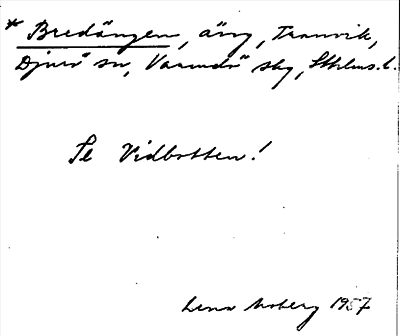 * Bredängen, äng, Tranvik,
Djurö sn, Värmdö skg, Sthlms. l.
Se Vidbotten!
Lena Moberg 1957